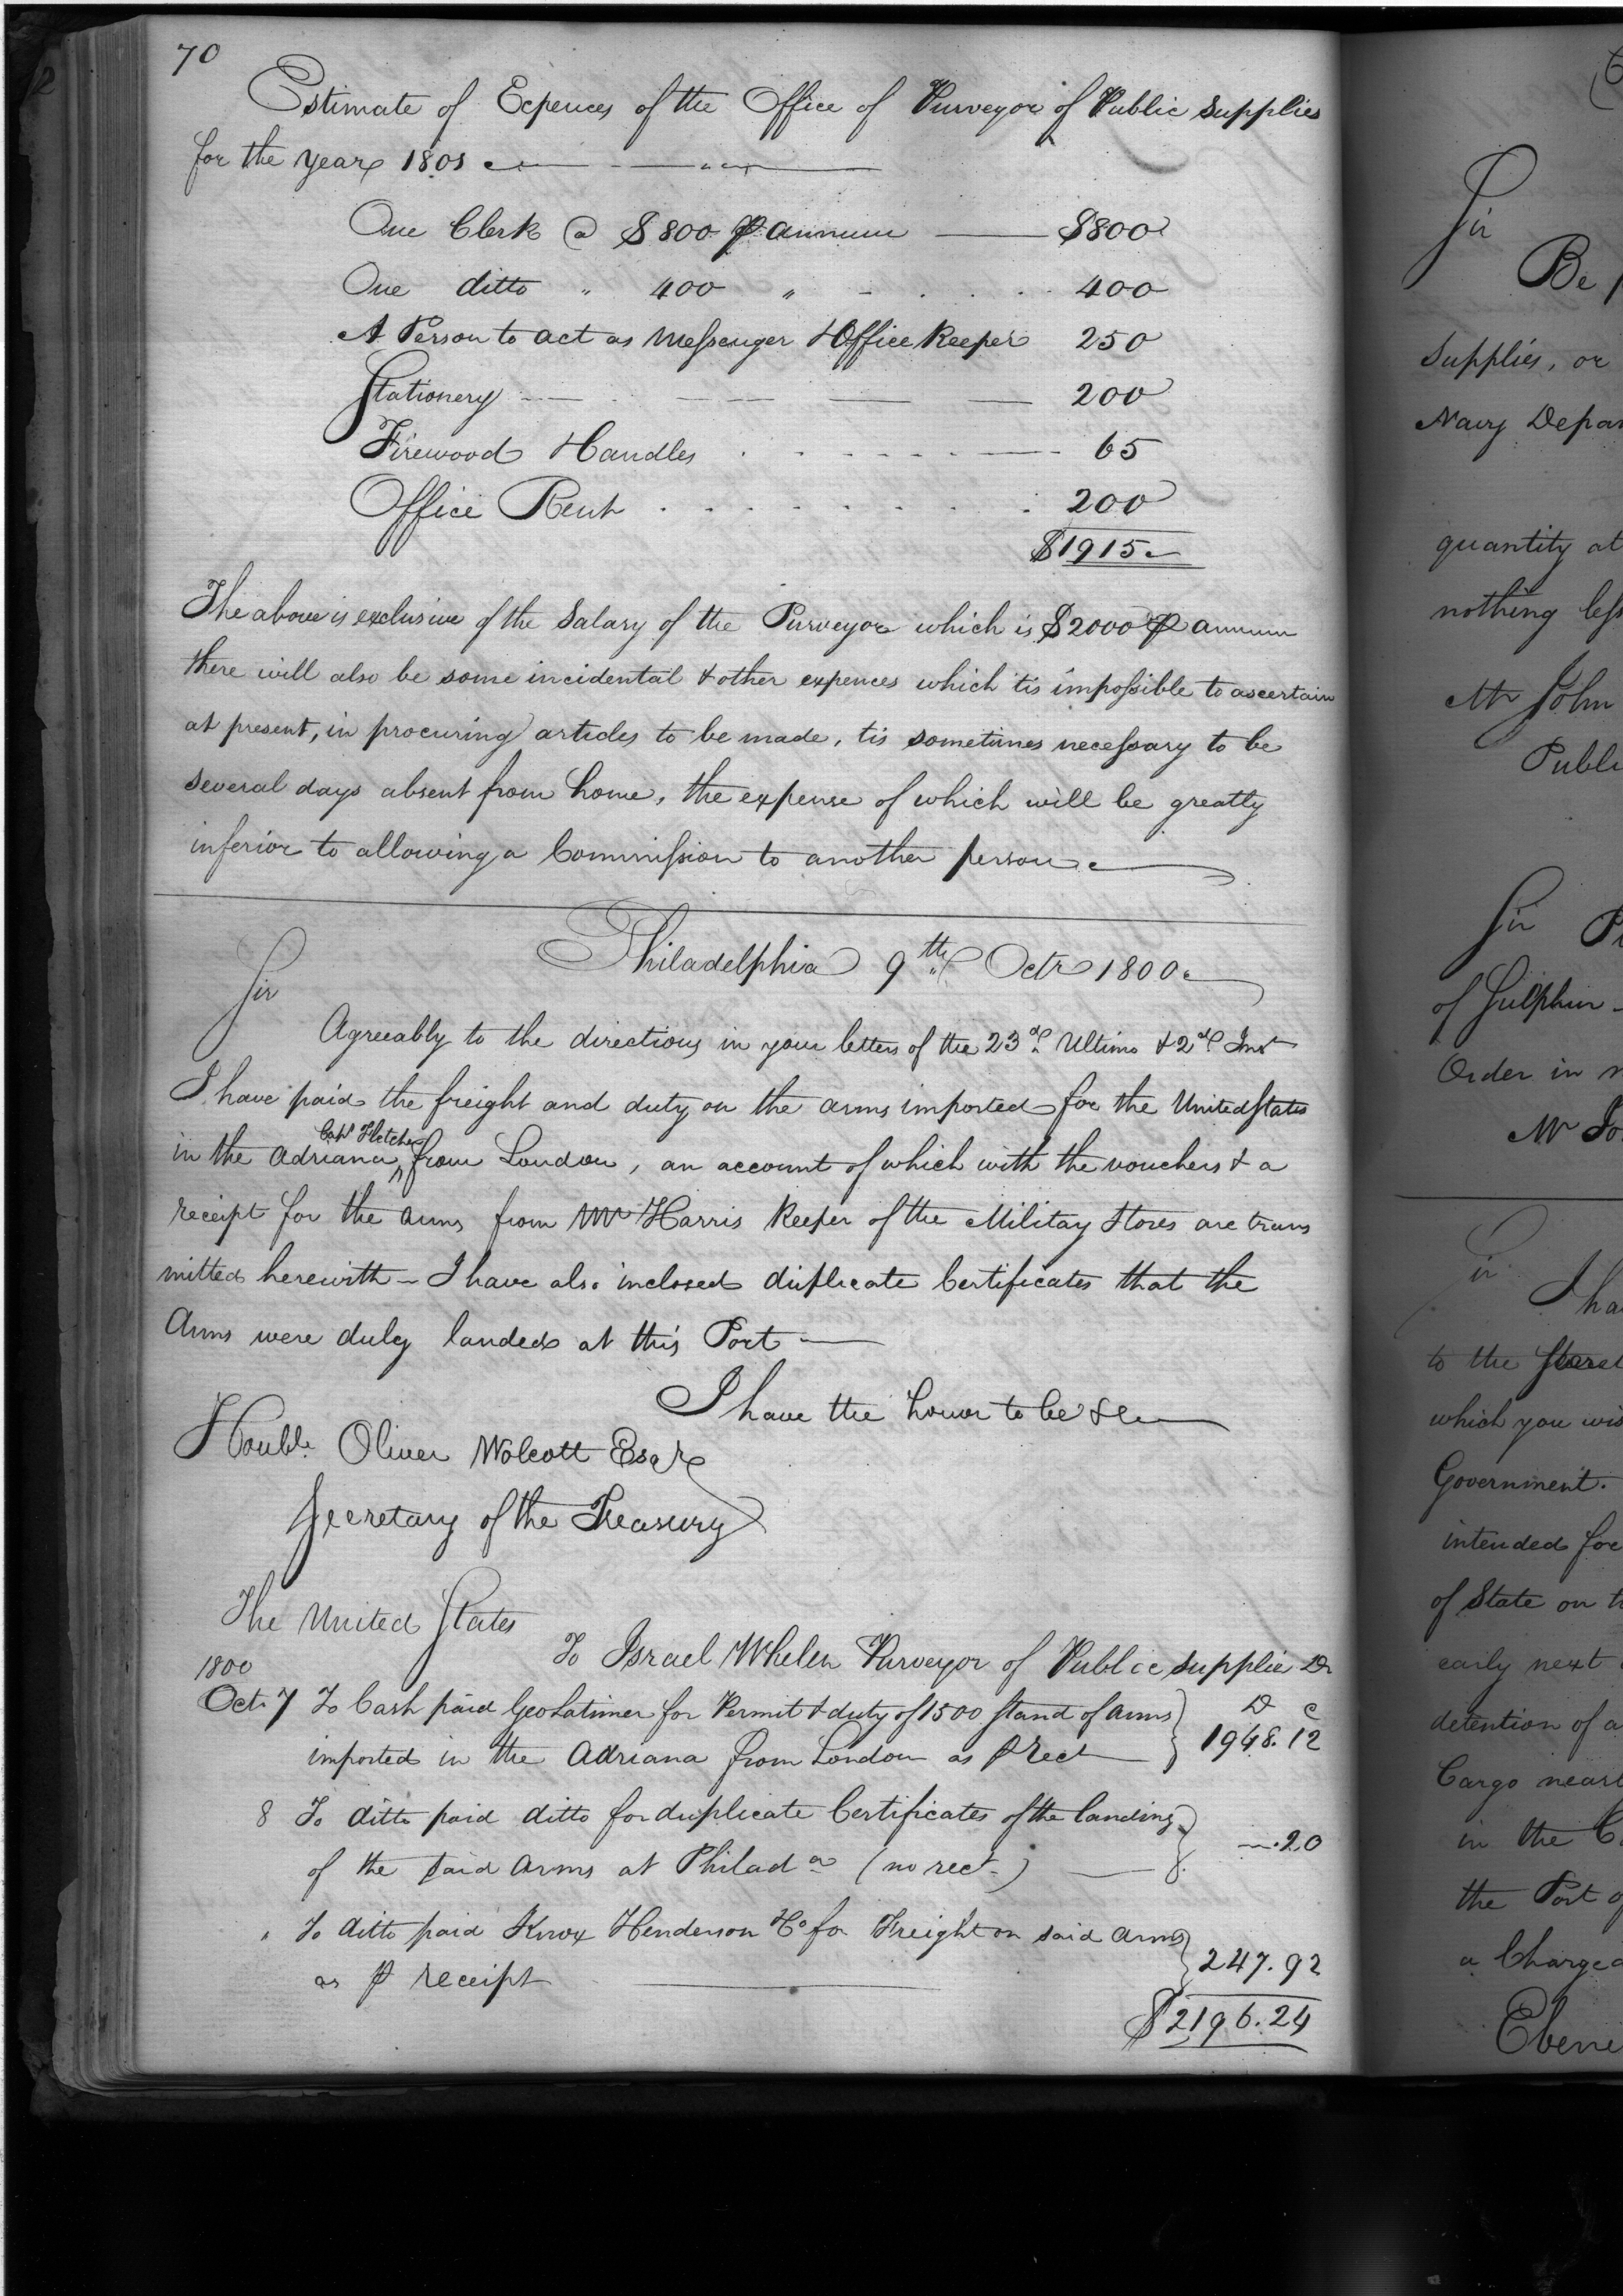 70
Estimate of Expences of the Office of Purveyor of Public Supplies
for the year 1801
One Clerk @ $800 ⅌ annum $800
One ditto " 400 " 400
A Person to act as Messenger & Office Keeper 250
Stationery 200
Firewood & Candles 65
Office Rent 200
$1915
The above is exclusive of the Salary of the Purveyor which is $2000 ⅌ annum
there will also be some incidental & other expences which tis impossible to ascertain
at present, in procuring articles to be made, tis sometimes necessary to be
several days absent from home, the expense of which will be greatly
inferior to allowing a Commission to another person
Philadelphia 9th Octr 1800
Sir
Agreeably to the directions in your letters of the 23d Ultimo & 2d Inst
I have paid the freight and duty on the arms imported for the United States
Capt Fletcher
in the Adriana ^ from London, an account of which with the vouchers & a
receipt for the arms from Mr Harris Keeper of the Military Stores are trans
mitted herewith – I have also inclosed duplicate Certificates that the
Arms were duly landed at this Port
I have the honor to be &c
Honble. Oliver Wolcott Esqr
Secretary of the Treasury
The United States
To Israel Whelen Purveyor of Public Supplie Dr
1800
Oct. 7 To Cash paid Geo Latimer for Permit & duty of 1500 stand of arms D C
imported in the Adriana from London as ⅌ Rect 1948.12
8 To ditto paid ditto for duplicate Certificates of the landing
of the said Arms at Philada (no rect.) .20
" To ditto paid Knox Henderson & Co for Freight on said arms
as ⅌ receipt 247.92
$2196.24
Sir
Be
Supplies, or
Navy Depar
quantity at
nothing less
Mr John
Publi
Sir
of Sulphur
Order in
Mr Jo
Sir
I ha
to the
which you wis
Government.
intended for
of State on
early next
detention of a
Cargo near
in the C
the Port o
a Charge
Ebene